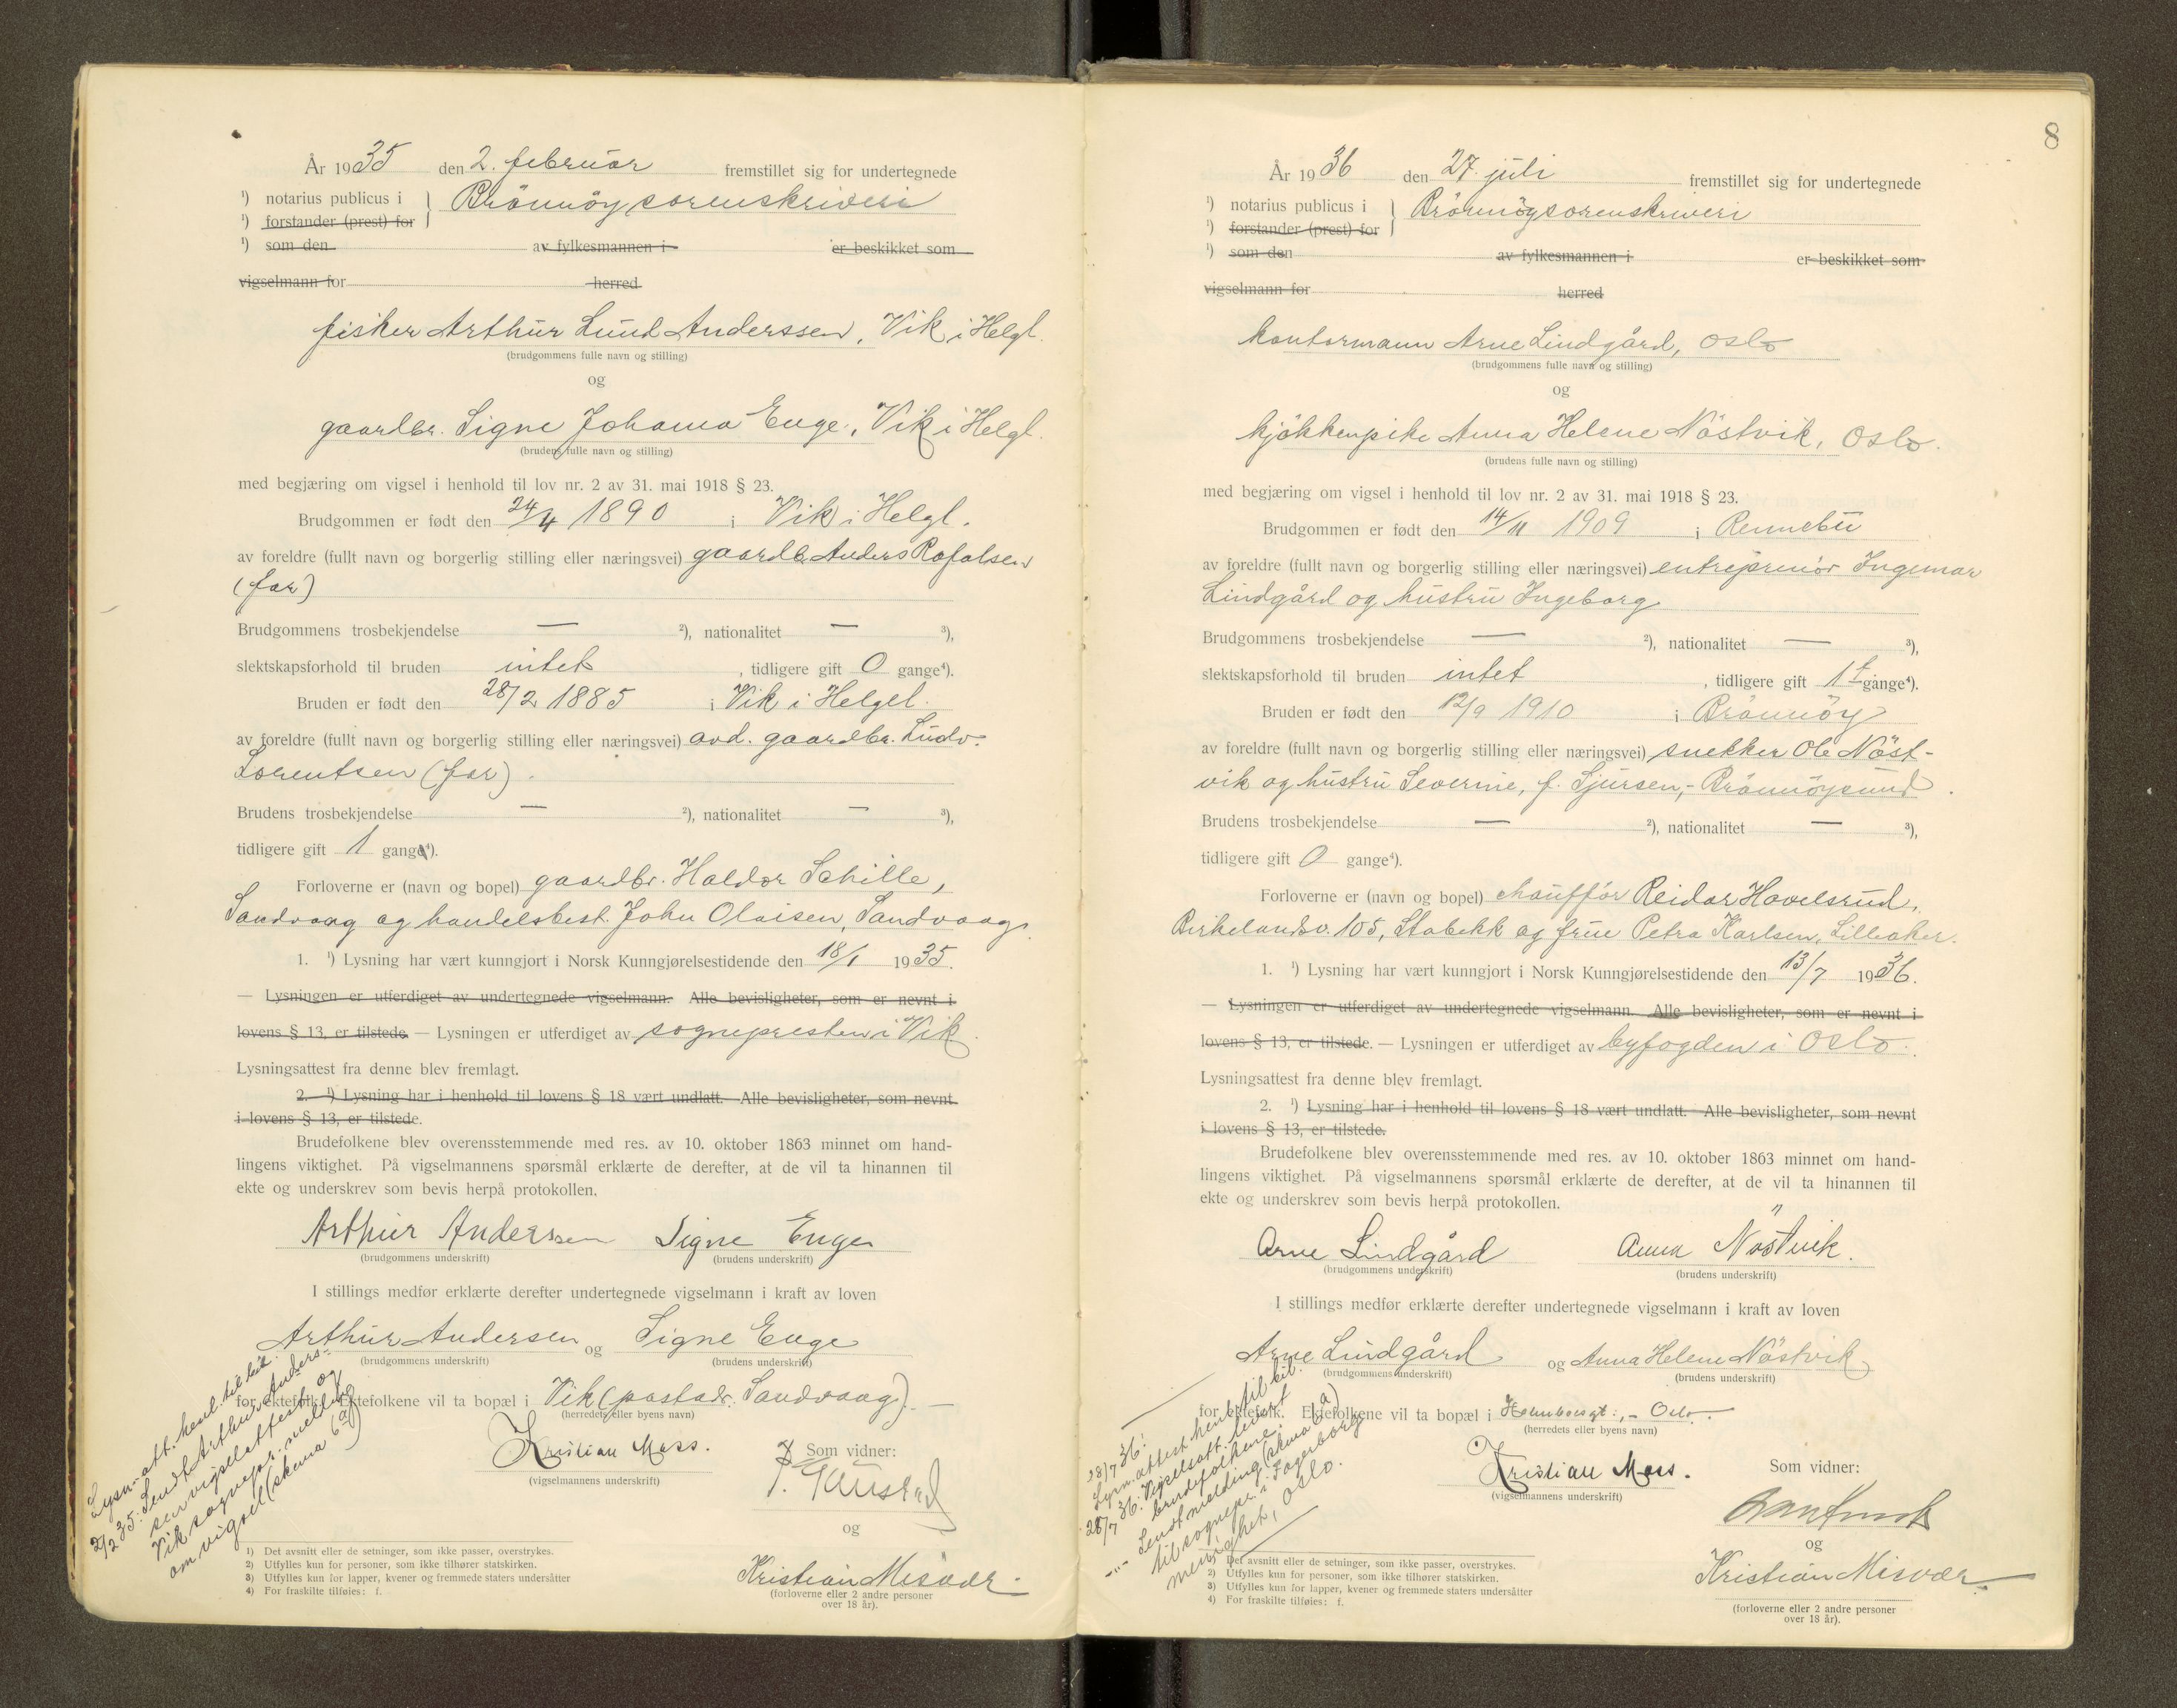 År 1935 den 2. februar fremstillet sig for undertegnede
¹) notarius publicus i } Brönnöy sorenskriveri
¹) forstander (prest) for
¹) som den av fylkesmannen i er beskikket som
vigselmann for herred
fisker Arthur Lund Anderssen, Vik i Helgl.
(brudgommens fulle navn og stilling)
og
gaardbr. Signe Johanna Enge, Vik i Helgl.
(brudens fulle navn og stilling)
med begjæring om vigsel i henhold til lov nr. 2 av 31. mai 1918 § 23.
Brudgommen er født den 24/4 1890 i Vik i Helgl.
av foreldre (fullt navn og borgerlig stilling eller næringsvei) gaardbr. Anders Rafalsen
(far)
Brudgommens trosbekjendelse — ²), nationalitet — ³),
slektskapsforhold til bruden intet, tidligere gift 0 gange⁴).
Bruden er født den 28/2 1885 i Vik i Helgel.
av foreldre (fullt navn og borgerlig stilling eller næringsvei) avd. gaardbr. Ludv.
Lorentsen (far).
Brudens trosbekjendelse — ²), nationalitet — ³),
tidligere gift 1 gang⁴).
Forloverne er (navn og bopel) gaardbr. Haldor Schille,
Sandvaag og handelsbest. John Olaisen, Sandvaag.
1. ¹) Lysning har vært kunngjort i Norsk Kunngjørelsestidende den 18/1 1935.
— Lysningen er utferdiget av undertegnede vigselmann. Alle bevisligheter, som er nevnt i
lovens § 13, er tilstede. — Lysningen er utferdiget av sognepresten i Vik.
Lysningsattest fra denne blev fremlagt.
2. ¹) Lysning har i henhold til lovens § 18 vært undlatt. Alle bevisligheter, som nevnt
i lovens § 13, er tilstede.
Brudefolkene blev overensstemmende med res. av 10. oktober 1863 minnet om hand-
lingens viktighet. På vigselmannens spørsmål erklærte de derefter, at de vil ta hinannen til
ekte og underskrev som bevis herpå protokollen.
Arthur Anderssen Signe Enge
(brudgommens underskrift) (brudens underskrift)
I stillings medfør erklærte derefter undertegnede vigselmann i kraft av loven
Arthur Andersen og Signe Enge
(brudgommens underskrift) (brudens underskrift)
for ektefolk. Ektefolkene vil ta bopæl i Vik (postadr. Sandvaag). —
(herredets eller byens navn)
Kristian Moss.
(vigselmannens underskrift)
Som vidner:
og
Kristian Misvær.
(forloverne eller 2 andre personer
over 18 år).
Lysn. att. henl. til bil.
2/2 35: Sendt Arthur Anders-
sen vigselattest og
Vik sognepr. melding
om vigsel (skema 6 a)
1) Det avsnitt eller de setninger, som ikke passer, overstrykes.
2) Utfylles kun for personer, som ikke tilhører statskirken.
3) Utfylles kun for lapper, kvener og fremmede staters undersåtter
4) For fraskilte tilføies: f.
8
År 1936 den 27. juli fremstillet sig for undertegnede
¹) notarius publicus i } Brönnöy sorenskriveri
¹) forstander (prest) for
¹) som den av fylkesmannen i er beskikket som
vigselmann for herred
kontormann Arne Lindgård, Oslo
(brudgommens fulle navn og stilling)
og
kjökkenpike Anna Helene Nöstvik, Oslo.
(brudens fulle navn og stilling)
med begjæring om vigsel i henhold til lov nr. 2 av 31. mai 1918 § 23.
Brudgommen er født den 14/11 1909 i Rennebu
av foreldre (fullt navn og borgerlig stilling eller næringsvei) entreprenör Ingemar
Lindgård og hustru Ingeborg
Brudgommens trosbekjendelse — ²), nationalitet — ³),
slektskapsforhold til bruden intet, tidligere gift 1 f gange⁴).
Bruden er født den 12/9 1910 i Brönnöy
av foreldre (fullt navn og borgerlig stilling eller næringsvei) snekker Ole Nöst-
vik og hustru Severine, f. Sjursen, - Brönnöysund.
Brudens trosbekjendelse — ²), nationalitet — ³),
tidligere gift 0 gange⁴).
Forloverne er (navn og bopel) chaufför Reidar Havelsrud,
Birkelandsv. 105, Stabekk og frue Petra Karlsen, Lilleaker.
1. ¹) Lysning har vært kunngjort i Norsk Kunngjørelsestidende den 13/7 1936.
— Lysningen er utferdiget av undertegnede vigselmann. Alle bevisligheter, som er nevnt i
lovens § 13, er tilstede. — Lysningen er utferdiget av byfogden i Oslo.
Lysningsattest fra denne blev fremlagt.
2. ¹) Lysning har i henhold til lovens § 18 vært undlatt. Alle bevisligheter, som nevnt
i lovens § 13, er tilstede.
Brudefolkene blev overensstemmende med res. av 10. oktober 1863 minnet om hand-
lingens viktighet. På vigselmannens spørsmål erklærte de derefter, at de vil ta hinannen til
ekte og underskrev som bevis herpå protokollen.
Arne Lindgård Anna Nöstvik.
(brudgommens underskrift) (brudens underskrift)
I stillings medfør erklærte derefter undertegnede vigselmann i kraft av loven
Arne Lindgård og Anna Helene Nöstvik
(brudgommens underskrift) (brudens underskrift)
for ektefolk. Ektefolkene vil ta bopæl i - Oslo.
(herredets eller byens navn)
Kristian Moss.
(vigselmannens underskrift)
Som vidner:
og
Kristian Misvær.
(forloverne eller 2 andre personer
over 18 år).
28/7 36:
Lysn. attest henl. til bil.
28/7 36: Vigselsatt. levert
brudefolkene
-"- Sendt melding (skema 6 a)
til sognepr. i Fagerborg
menighet, Oslo.
1) Det avsnitt eller de setninger, som ikke passer, overstrykes.
2) Utfylles kun for personer, som ikke tilhører statskirken.
3) Utfylles kun for lapper, kvener og fremmede staters undersåtter
4) For fraskilte tilføies: f.